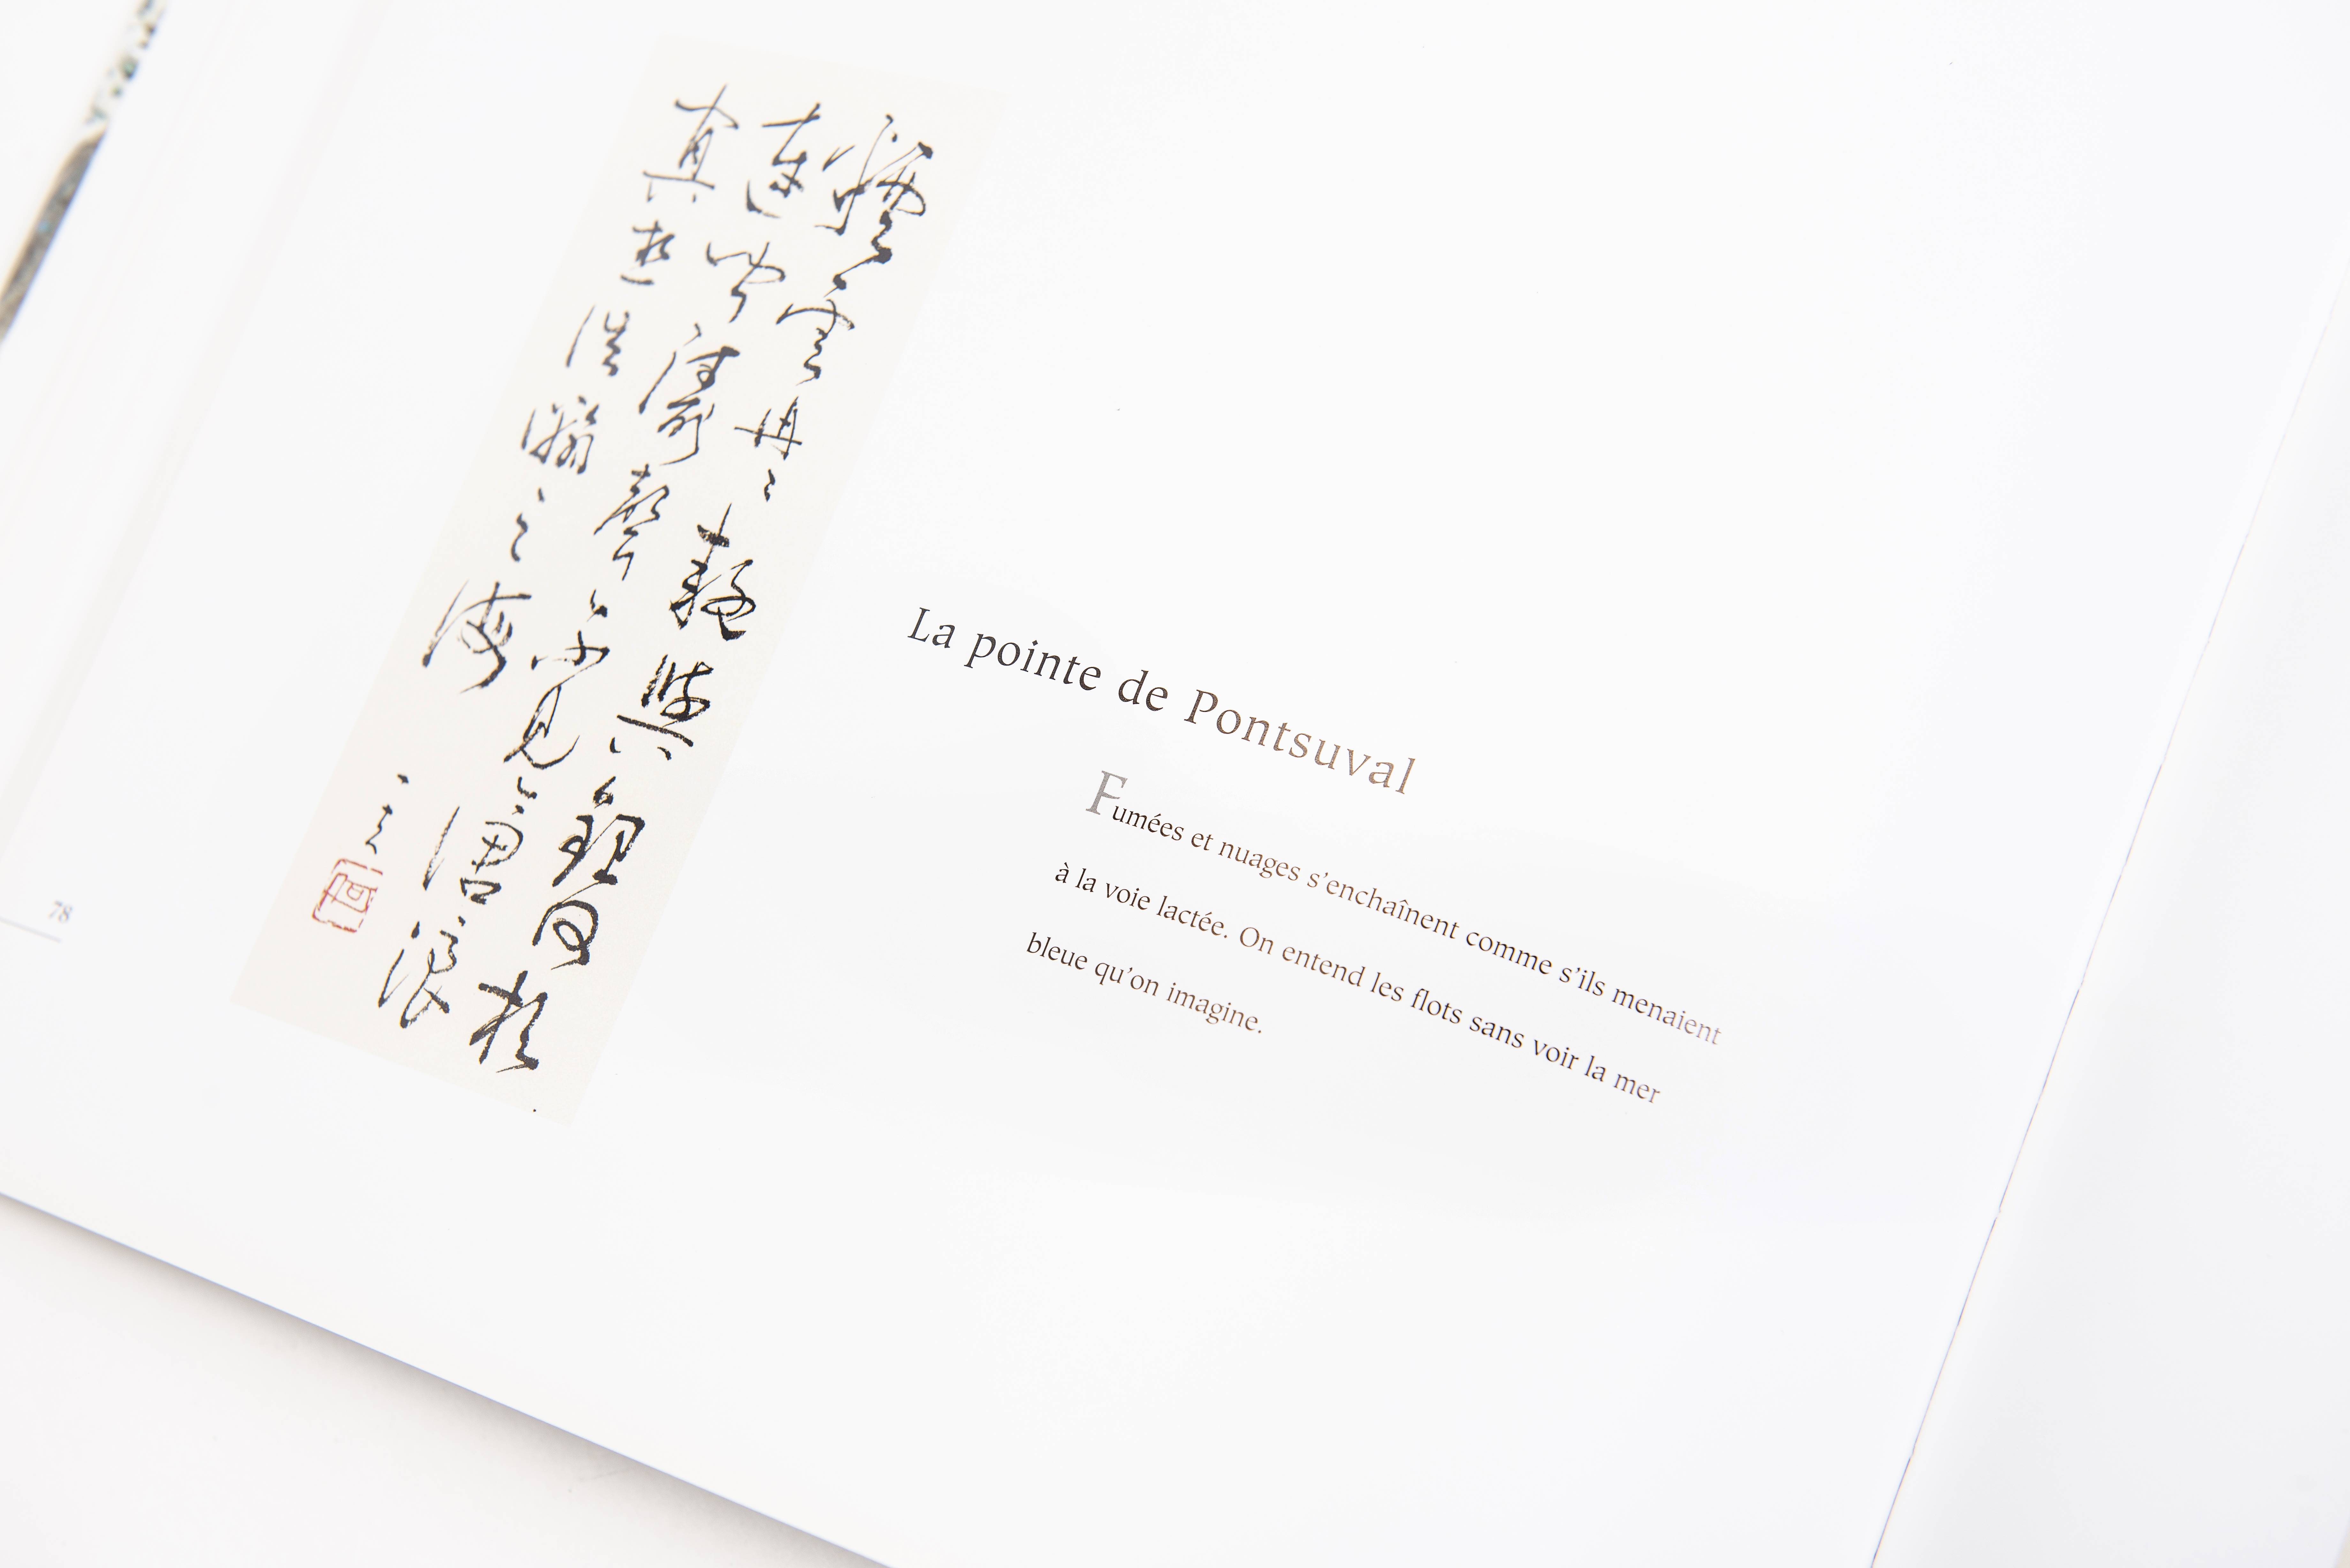 78
雲冉々與銀河相
連聞濤聲不見滄浪
真想浩瀚之海
La pointe de Pontsuval
Fumées et nuages s'enchaînent comme s'ils menaient
à la voie lactée. On entend les flots sans voir la mer
bleue qu'on imagine.